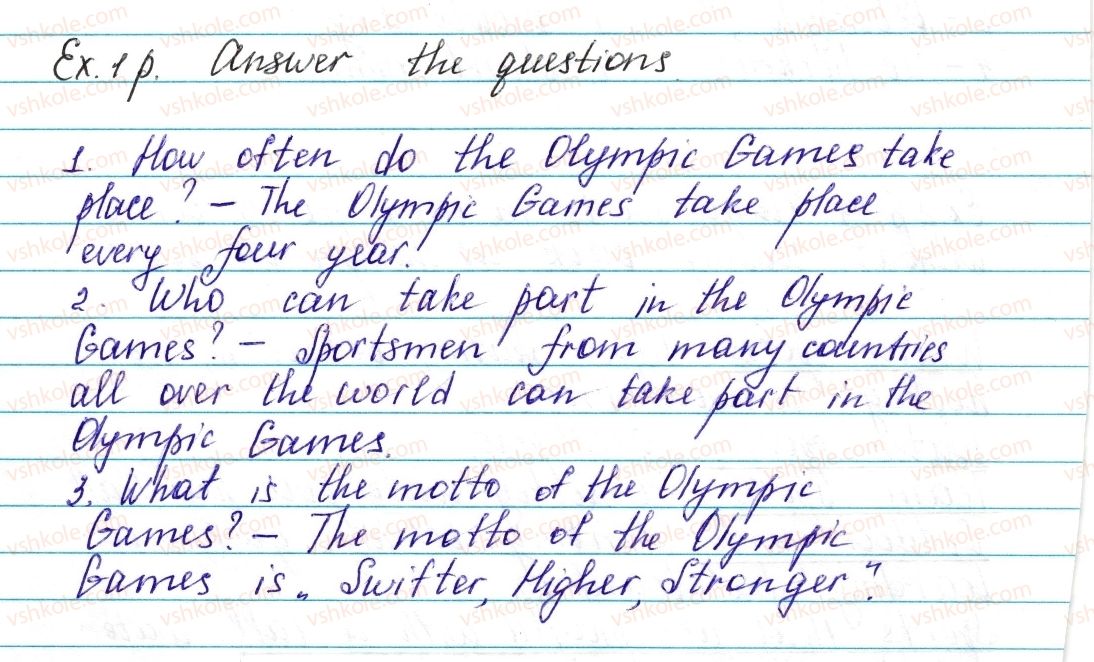 Ex. 1 p. Answer the questions.
1. How often do the Olympic Games take
place? – The Olympic Games take place
every four year.
2. Who can take part in the Olympic
Games? – Sportsmen from many countries
all over the world can take part in the
Olympic Games.
3. What is the motto of the Olympic
Games? – The motto of the Olympic
Games is „ Swifter, Higher, Stronger".
vshkole.com